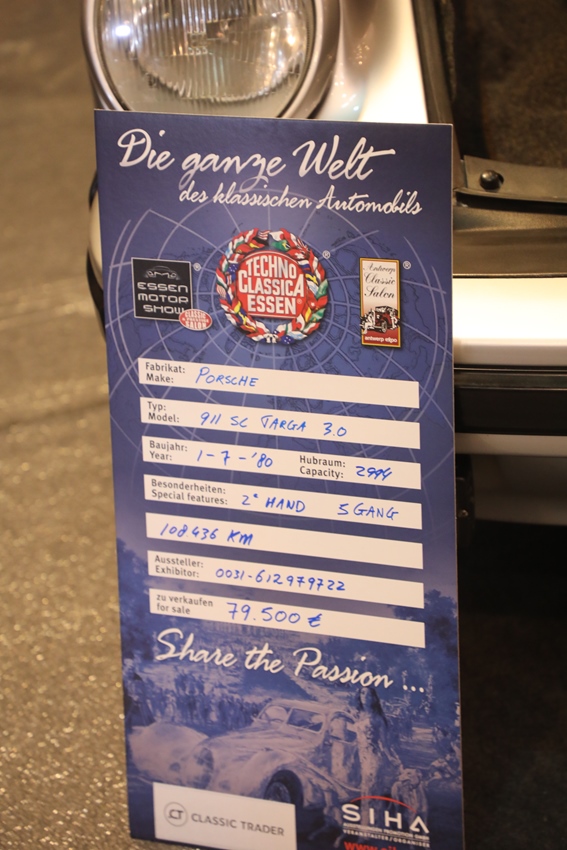 Die ganze Welt
des klassischen Automobils
ESSEN
MOTOR
SHOW
®
CLASSIC
SALON
TECHNO
CLASSICA
ESSEN
®
Antwerp
Classic
Salon
®
antwerp expo
Fabrikat:
Make: PORSCHE
Typ:
Model: 911 SC TARGA 3.0
Baujahr:
Year: 1-7-'80
Hubraum:
Capacity: 2994
Besonderheiten:
Special features: 2e HAND 5 GANG
108436 KM
Aussteller:
Exhibitor: 0031-612979722
zu verkaufen
for sale 79.500 €
Share the Passion ...
CT CLASSIC TRADER
SIHA
VERANSTALTER/ORGANISER